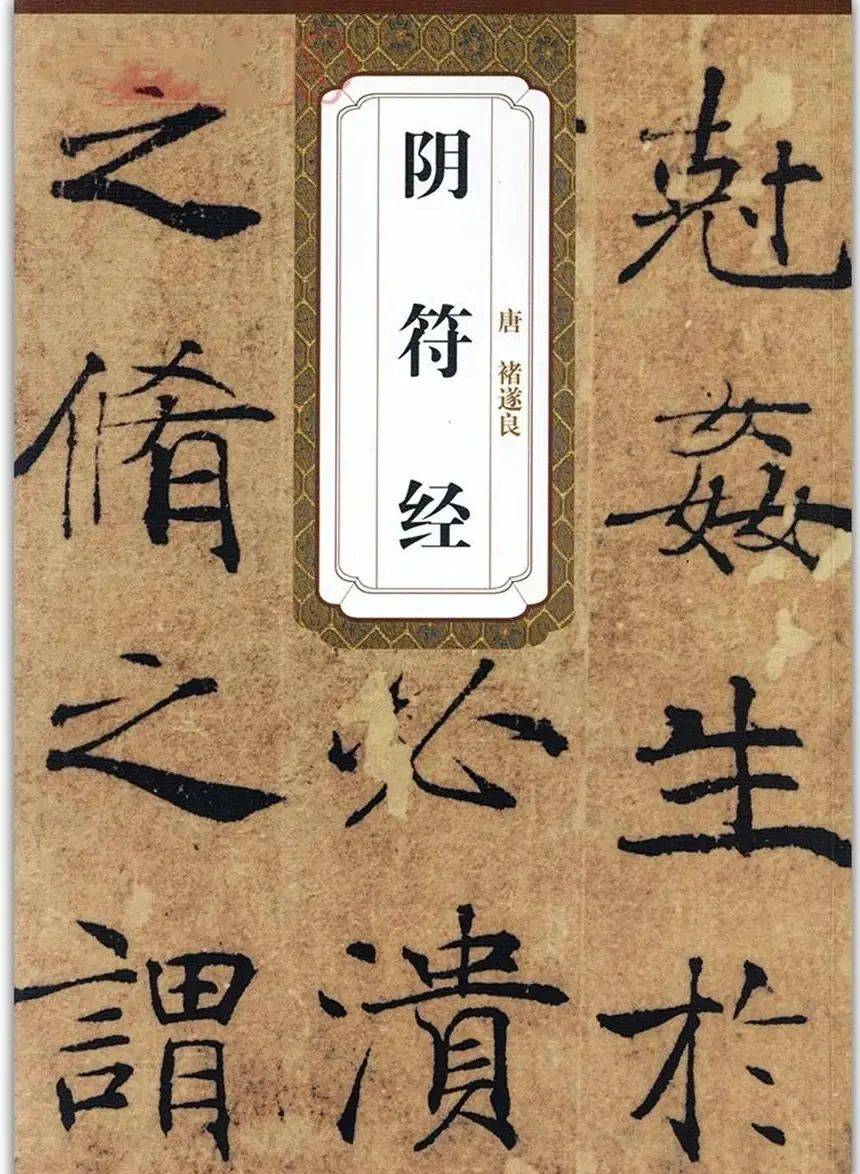 阴符经
唐 褚遂良
尅姦生於
必潰
之脩之謂